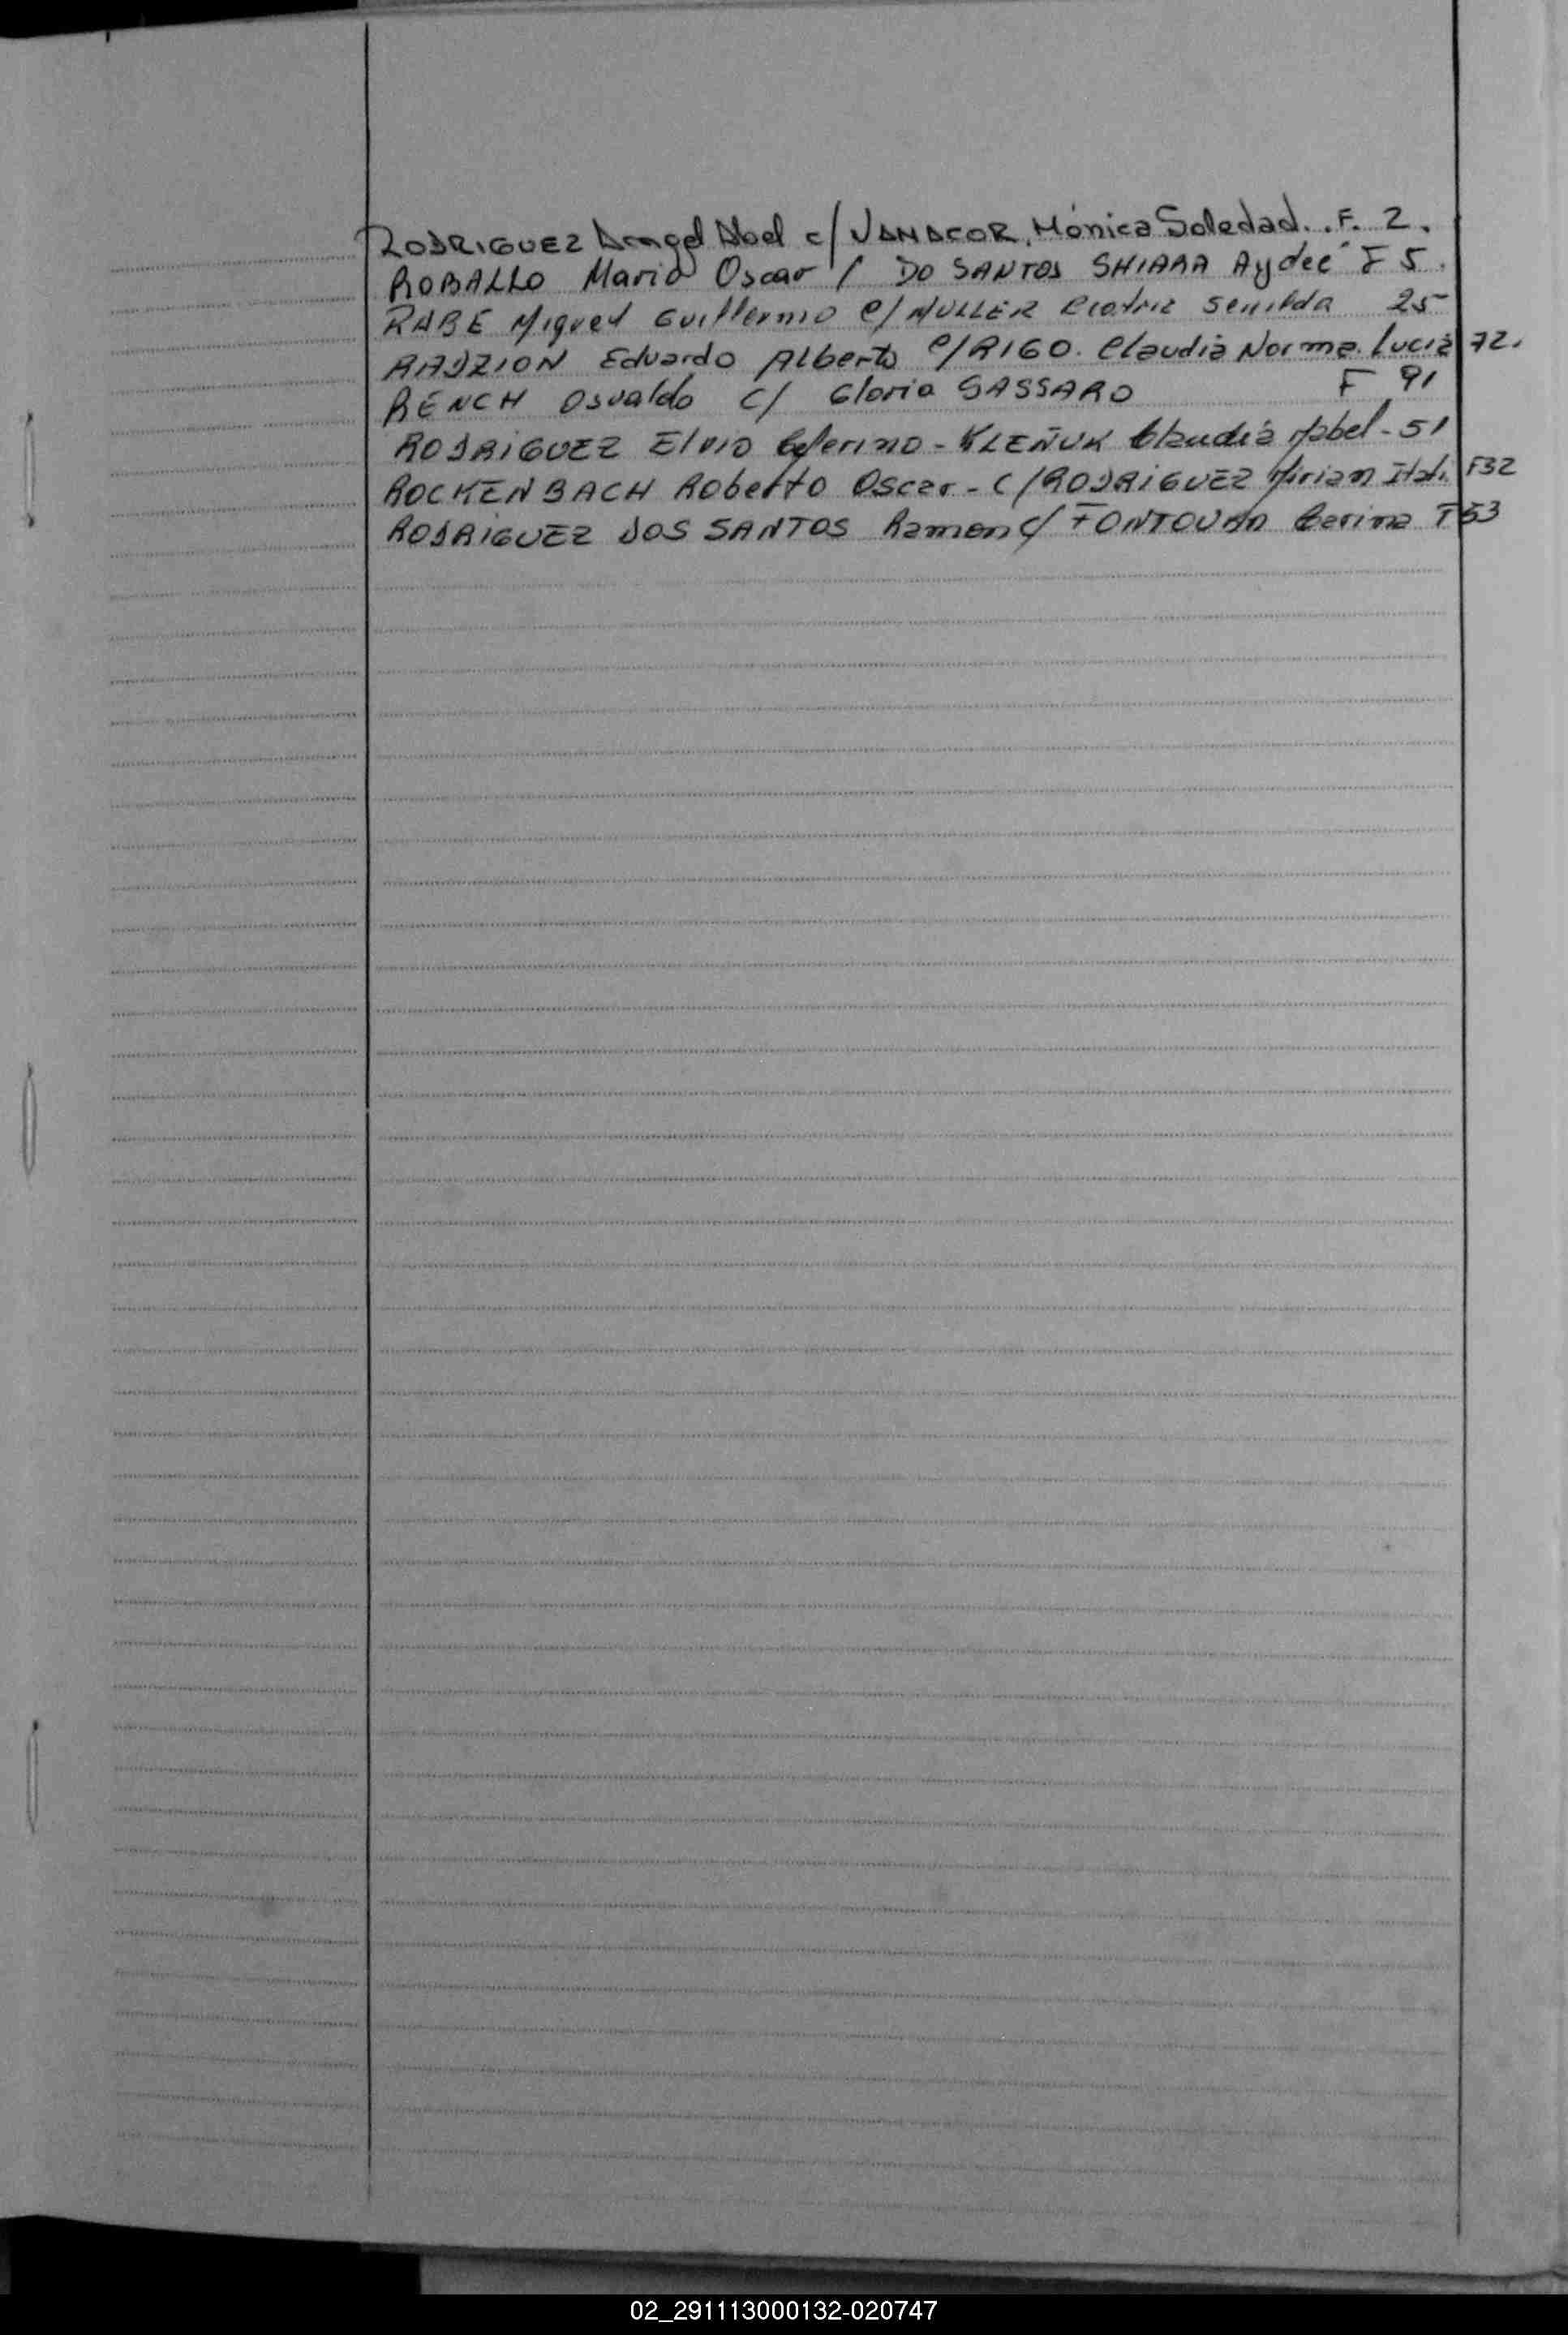 RODRIGUEZ Angel Abel c/ VANACOR, Mónica Soledad. . F. 2.
ROBALLO Mario Oscar / DO SANTOS SHIARA Aydeé F 5.
RABE Miguel Guillermo c/ MULLER Beatriz Senilda 25
RADZION Eduardo Alberto c/ RIGO. Claudia Norma Lucia 72.
RENCH Osvaldo c/ Gloria SASSARO F 91
RODRIGUEZ Elvio Ceferino - KLEÑUK Claudia Mabel - 51
ROCKENBACH Roberto Oscar - C/ RODRIGUEZ Mirian Itatí F32
RODRIGUEZ DOS SANTOS Ramon C/ Carina F53
02_291113000132-020747